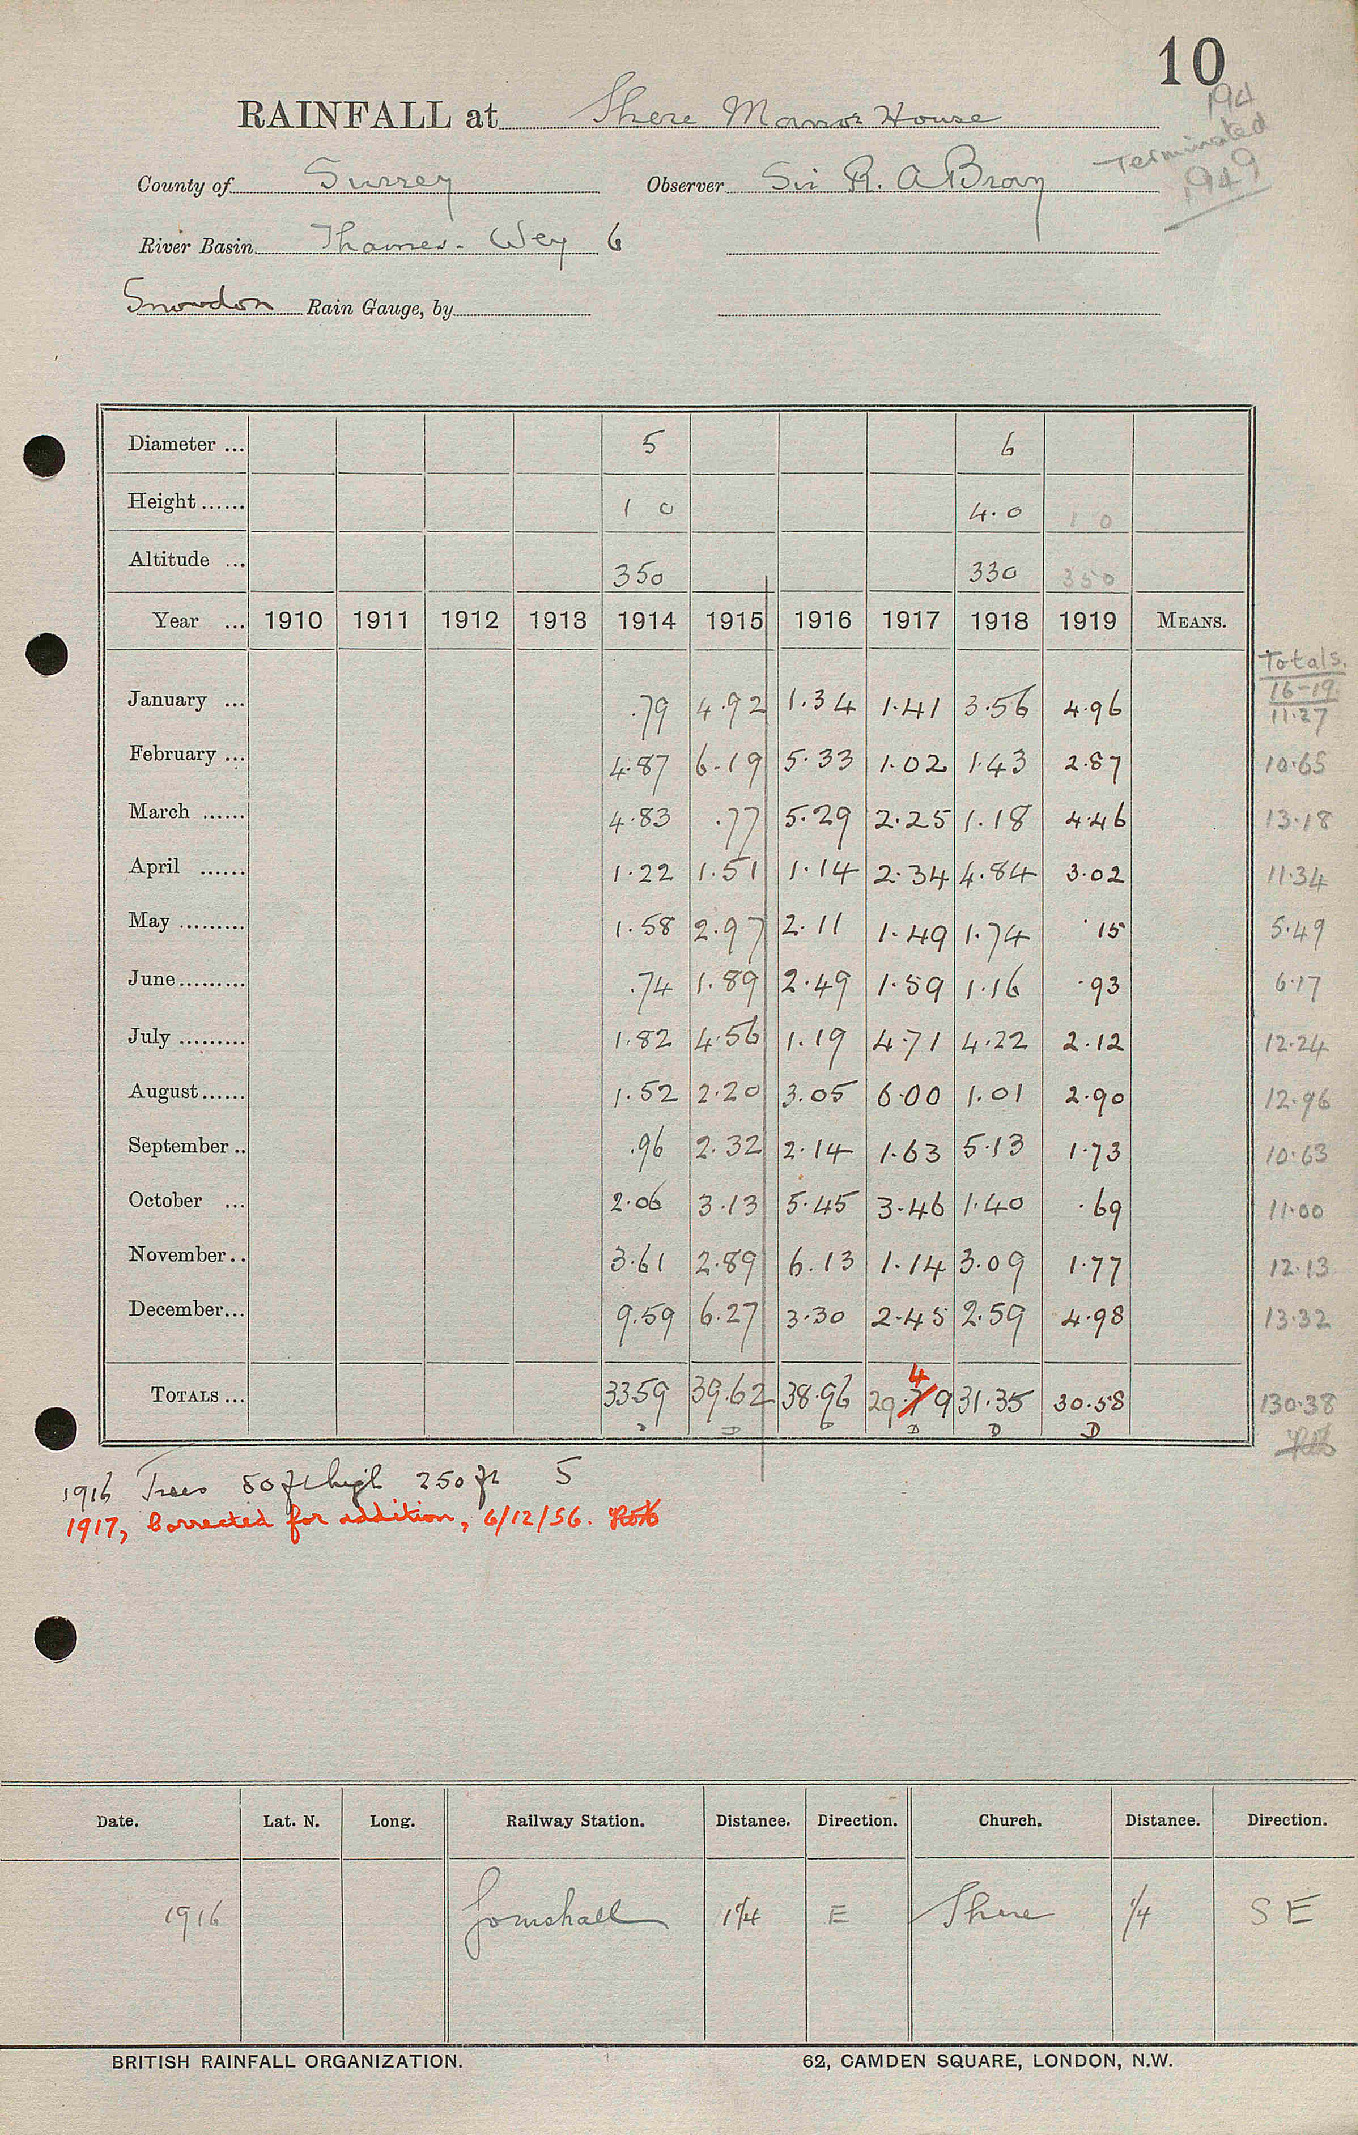 10
194
RAINFALL at Shere Manor House
Terminated
1949
County of Surrey Observer Sir R. A Bray
River Basin Thames - Wey 6
Snowdon Rain Gauge, by
Diameter ... 5 6
Height ...... 1 0 4.0 1 0
Altitude ... 350 330 350
Year ... 1910 1911 1912 1913 1914 1915 1916 1917 1918 1919 MEANS.
Totals.
16-19.
January ... .79 4.92 1.34 1.41 3.56 4.96 11.27
February ... 4.87 6.19 5.33 1.02 1.43 2.87 10.65
March ...... 4.83 .77 5.29 2.25 1.18 4.46 13.18
April ...... 1.22 1.51 1.14 2.34 4.84 3.02 11.34
May ......... 1.58 2.97 2.11 1.49 1.74 .15 5.49
June ......... .74 1.89 2.49 1.59 1.16 .93 6.17
July ......... 1.82 4.56 1.19 4.71 4.22 2.12 12.24
August ...... 1.52 2.20 3.05 6.00 1.01 2.90 12.96
September .. .96 2.32 2.14 1.63 5.13 1.73 10.63
October ... 2.06 3.13 5.45 3.46 1.40 .69 11.00
November .. 3.61 2.89 6.13 1.14 3.09 1.77 12.13
December ... 9.59 6.27 3.30 2.45 2.59 4.98 13.32
4
TOTALS ... 33.59 39.62 38.96 29.79 31.35 30.58 130.38
D D D D D D
1916 Trees 50 ft high 250 ft 5
1917, Corrected for addition, 6/12/56.
Date. Lat. N. Long. Railway Station. Distance. Direction. Church. Distance. Direction.
1916 Gomshall 1 1/4 E Shere 1/4 S E
BRITISH RAINFALL ORGANIZATION. 62, CAMDEN SQUARE, LONDON, N.W.